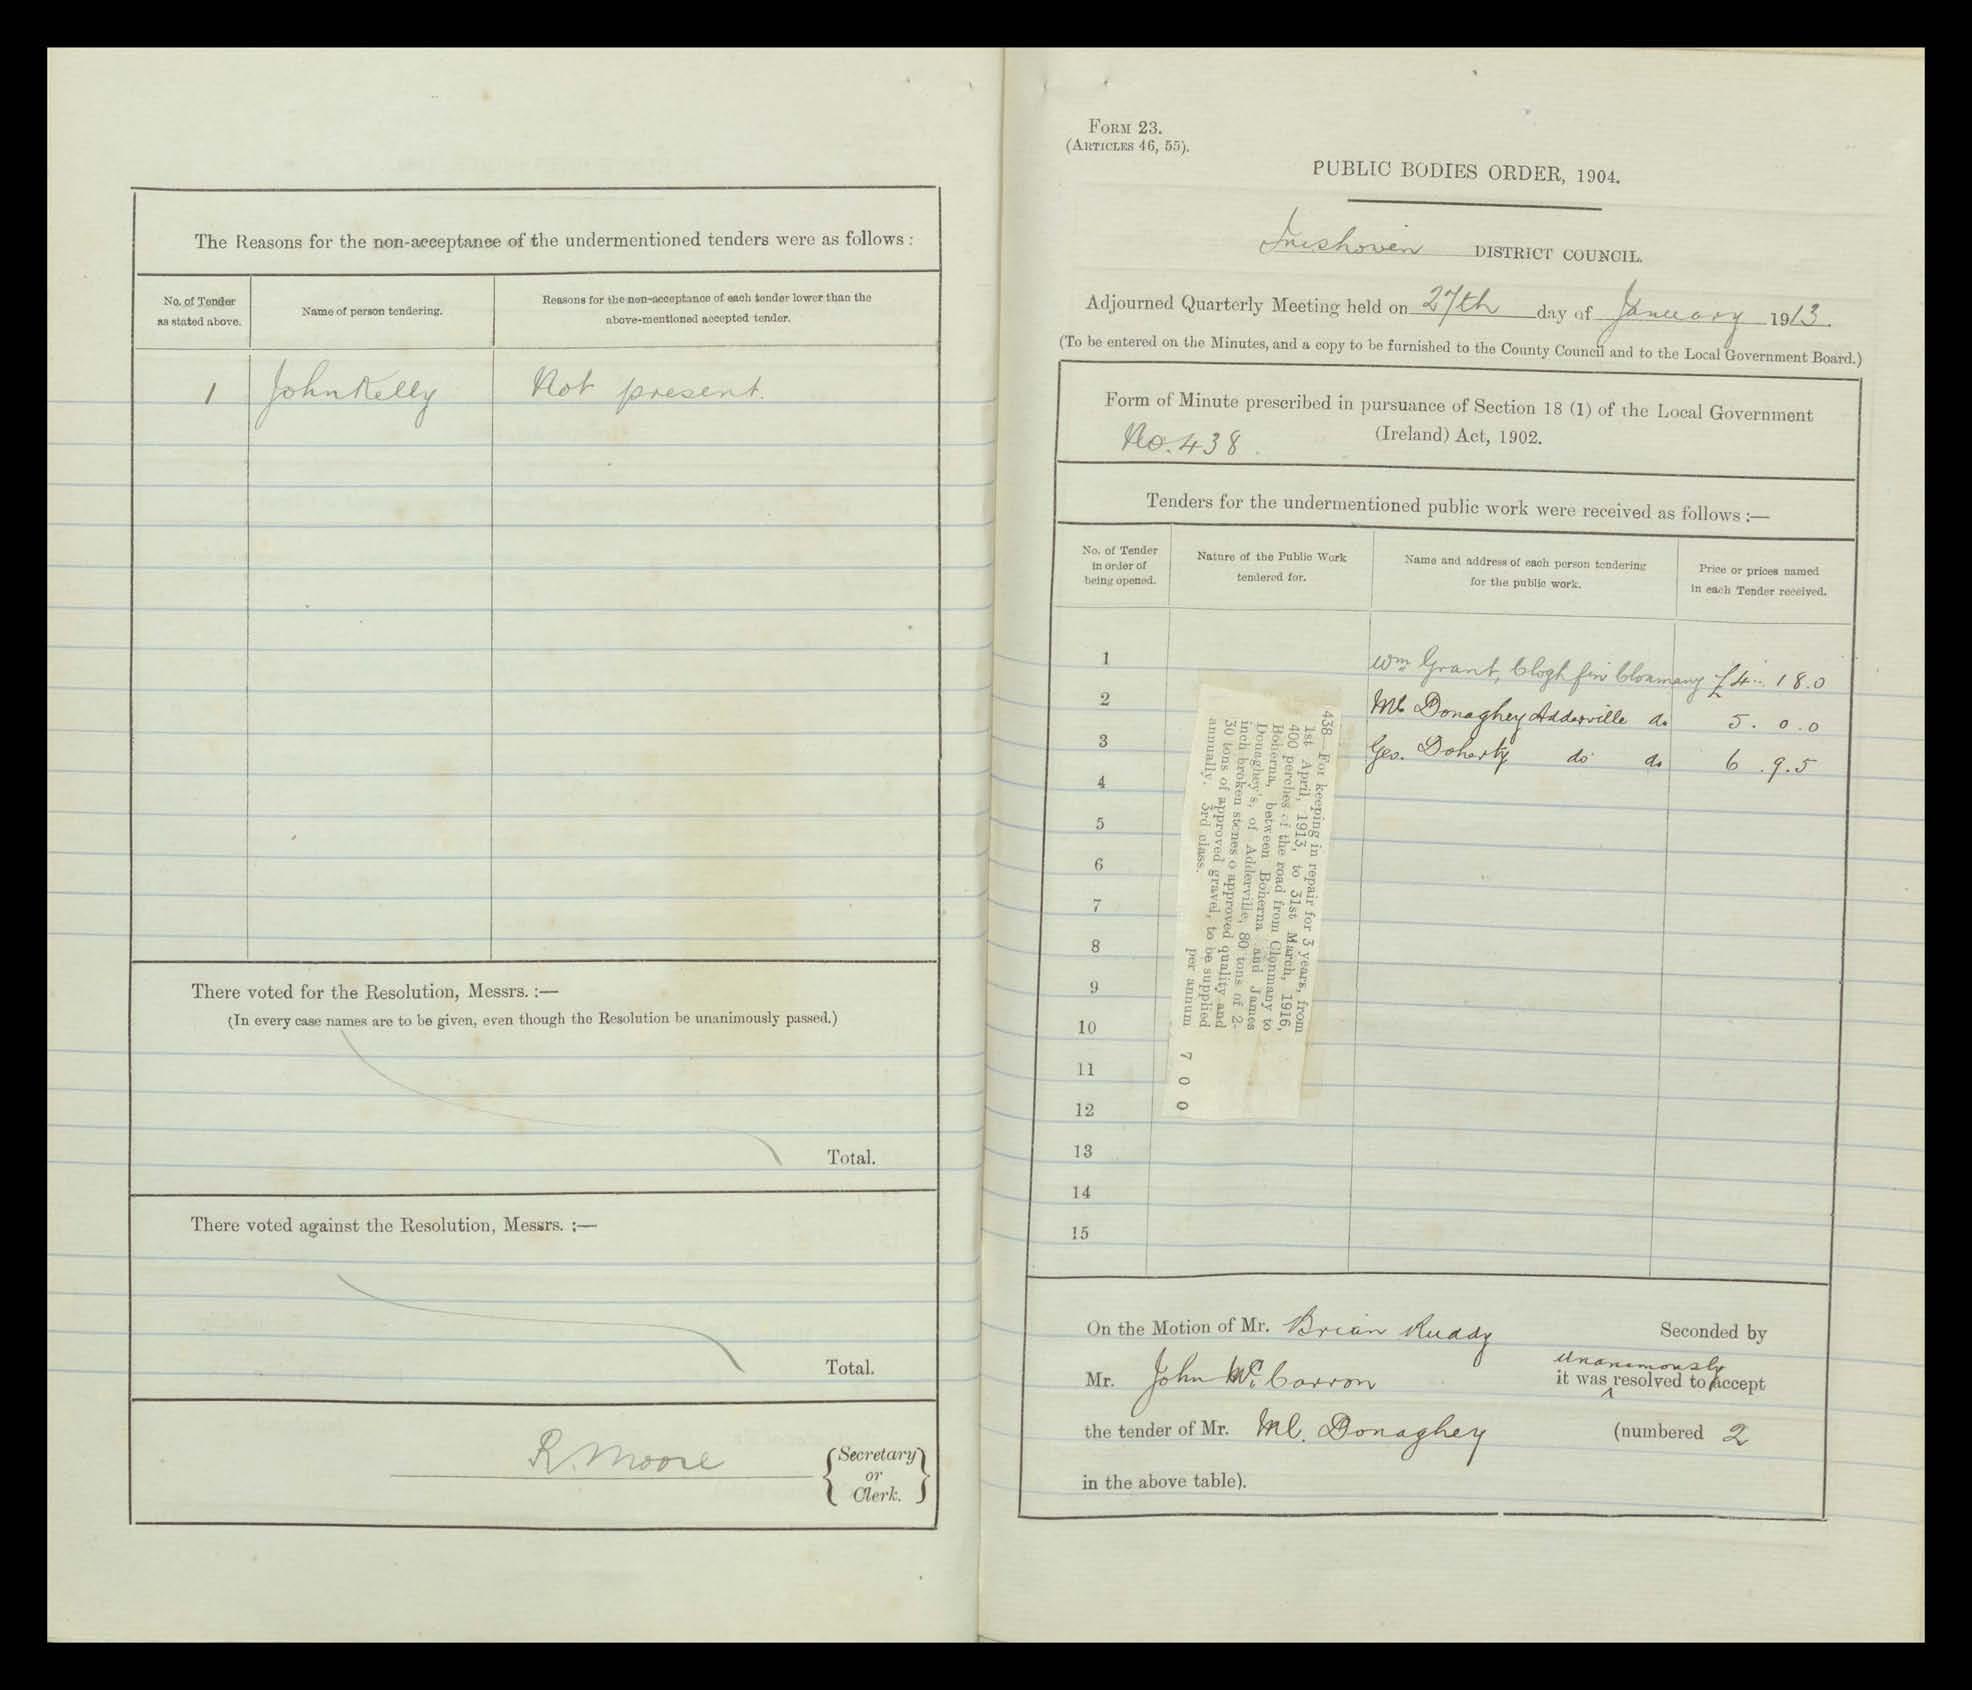 The Reasons for the non-acceptance of the undermentioned tenders were as follows :
No. of Tender as stated above.
Name of person tendering.
Reasons for the non-acceptance of each tender lower than the above-mentioned accepted tender.
1 John Kelly Not present.
There voted for the Resolution, Messrs. :—
(In every case names are to be given, even though the Resolution be unanimously passed.)
Total.
There voted against the Resolution, Messrs. :—
Total.
R. Moore
Secretary
or
Clerk.
FORM 23.
(ARTICLES 46, 55).
PUBLIC BODIES ORDER, 1904.
Inishowen DISTRICT COUNCIL.
Adjourned Quarterly Meeting held on 27th day of January 1913.
(To be entered on the Minutes, and a copy to be furnished to the County Council and to the Local Government Board.)
Form of Minute prescribed in pursuance of Section 18 (1) of the Local Government
(Ireland) Act, 1902.
No. 438.
Tenders for the undermentioned public work were received as follows :—
No. of Tender in order of being opened.
Nature of the Public Work tendered for.
Name and address of each person tendering for the public work.
Price or prices named in each Tender received.
1 Wm Grant, Cloghfin Clonmany £4.. 18.0
2 Ml Donaghey Adderville do 5. 0.0
3 Geo. Doherty do do 6.9.5
4
5
6
7
8
9
10
11
12
13
14
15
438—For keeping in repair for 3 years, from
1st April, 1913, to 31st March, 1916,
400 perches of the road from Clonmany to
Boherna, between Boherna and James
Donaghey's, of Adderville, 80 tons of 2-
inch broken stones o approved quality and
30 tons of approved gravel, to be supplied
annually. 3rd class.
per annum 7 0 0
On the Motion of Mr. Brian Ruddy Seconded by
Mr. John McCarron it was unanimously resolved to accept
the tender of Mr. Ml. Donaghey (numbered 2
in the above table).